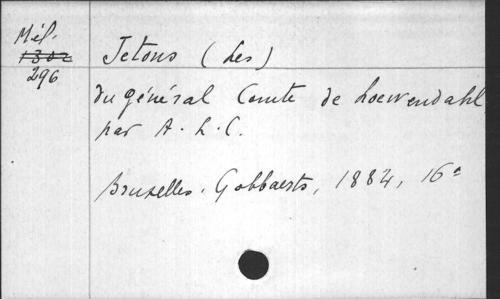 Mél.
1302
296
Jetons (Les)
du général Comte de Loewendahl,
par A. L. C.
Bruxelles. Gobbaerts, 1884, 16°